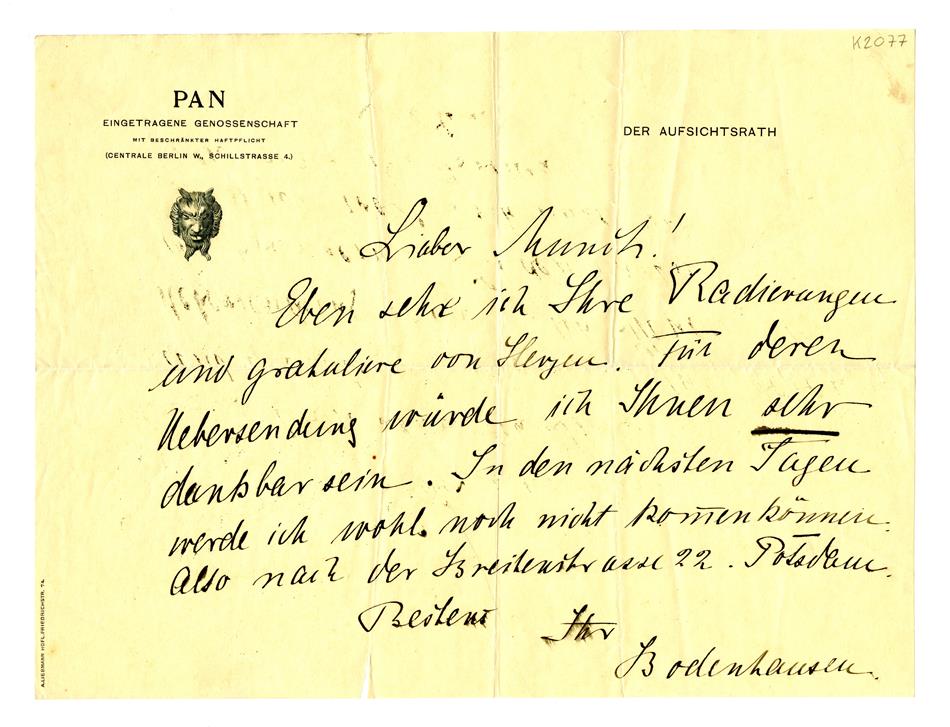 K2077
PAN
EINGETRAGENE GENOSSENSCHAFT
MIT BESCHRÄNKTER HAFTPFLICHT
(CENTRALE BERLIN W., SCHILLSTRASSE 4.)
DER AUFSICHTSRATH
Lieber Munch!
Eben sehe ich Ihre Radierungen
und gratuliere von Herzen. Für deren
Uebersendung würde ich Ihnen sehr
dankbar sein. In den nächsten Tagen
werde ich wohl noch nicht kom̄en können.
Also nach der Breitenstrasse 22. Potsdam.
Bestens
Ihr
Bodenhausen.
A. LIEBMANN HOFL. FRIEDRICHSTR. 74